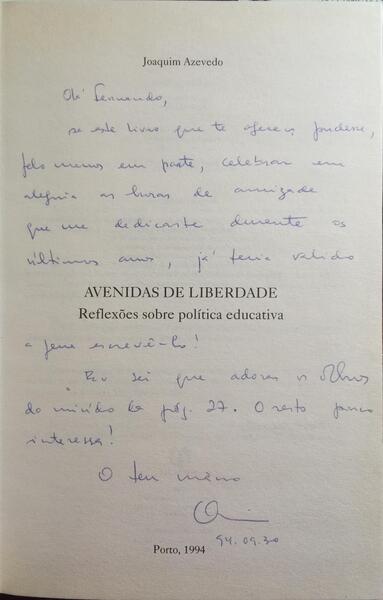 Joaquim Azevedo
Olá Fernando,
se este livro que te ofereço pudesse,
pelo menos em parte, celebrar em
alegria as horas de amizade
que me dedicaste durante os
últimos anos, já teria valido
AVENIDAS DE LIBERDADE
Reflexões sobre política educativa
a pena escrevê-lo!
Eu sei que adoras os olhos
do miúdo da pág. 27. O resto pouco
interessa!
O teu mano
94.09.30
Porto, 1994